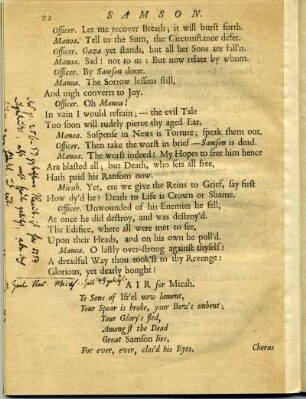 22 SAMSON.
Officer. Let me recover Breath; it will burst forth.
Manoa. Tell us the Sum, the Circumstance defer.
Officer. Gaza yet stands, but all her Sons are fall'n.
Manoa. Sad! not to us: But now relate by whom.
Officer. By Samson done.
Manoa. The Sorrow lessens still,
And nigh converts to Joy.
Officer. Oh Manoa!
In vain I would refrain; — the evil Tale
Too soon will rudely pierce thy aged Ear.
Manoa. Suspense in News is Torture; speak them out.
Officer. Then take the worst in brief—Samson is dead.
Manoa. The worst indeed! My Hopes to free him hence
Are blasted all; but Death, who sets all free,
Hath paid his Ransom now.
Micah. Yet, ere we give the Reins to Grief, say first
How dy'd he? Death to Life is Crown or Shame.
Officer. Unwounded of his Enemies he fell,
At once he did destroy, and was destroy'd.
The Edifice, where all were met to see,
Upon their Heads, and on his own he pull'd.
Manoa. O lastly over-strong against thyself!
A dreadful Way thou took'st to thy Revenge:
Glorious, yet dearly bought!
AIR for Micah.
Ye Sons of Isr'el now lament,
Your Spear is broke, your Bow's unbent;
Your Glory's fled,
Amongst the Dead
Great Samson lies,
For ever, ever, clos'd his Eyes.
Chorus